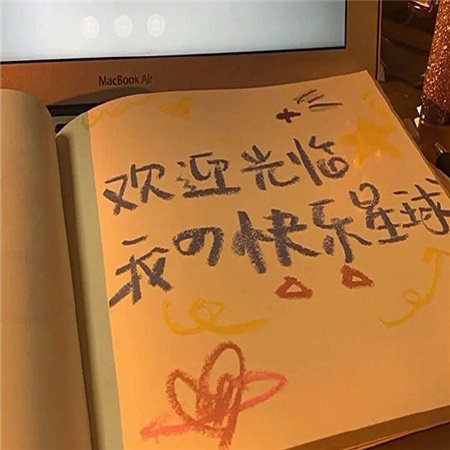 MacBook Air
欢迎光临
我の快乐星球